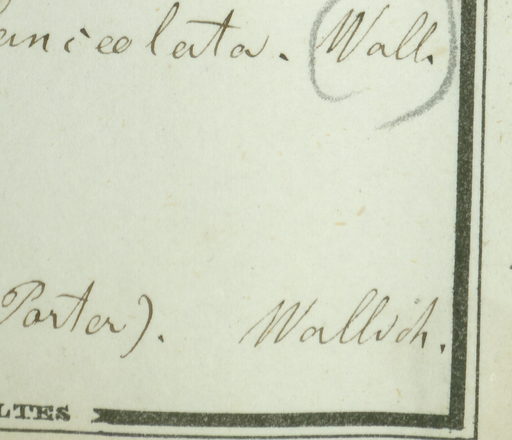 lanceolata. Wall.
Porter). Wallich.
LTES